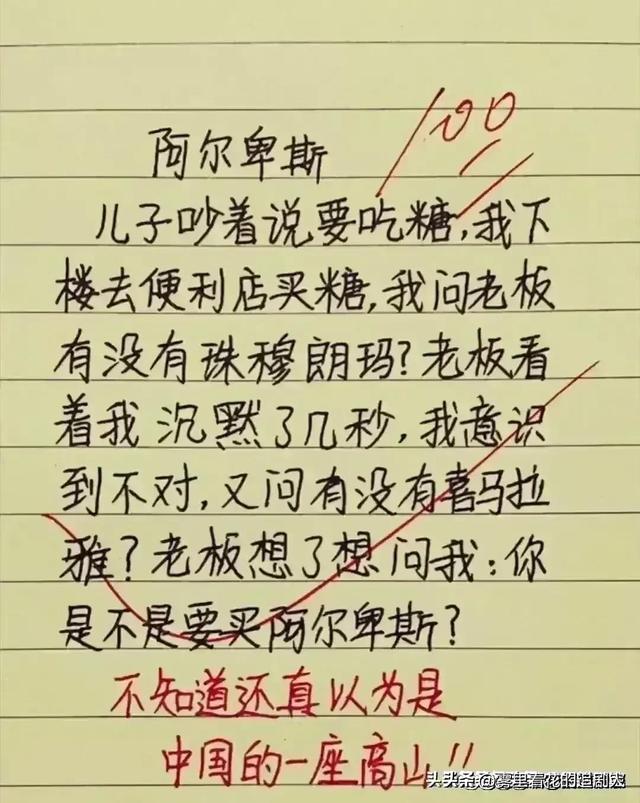 100
阿尔卑斯
儿子吵着说要吃糖,我下
楼去便利店买糖,我问老板
有没有珠穆朗玛?老板看
着我沉默了几秒,我意识
到不对,又问有没有喜马拉
雅?老板想了想问我:你
是不是要买阿尔卑斯?
不知道还真以为是
中国的一座高山!!